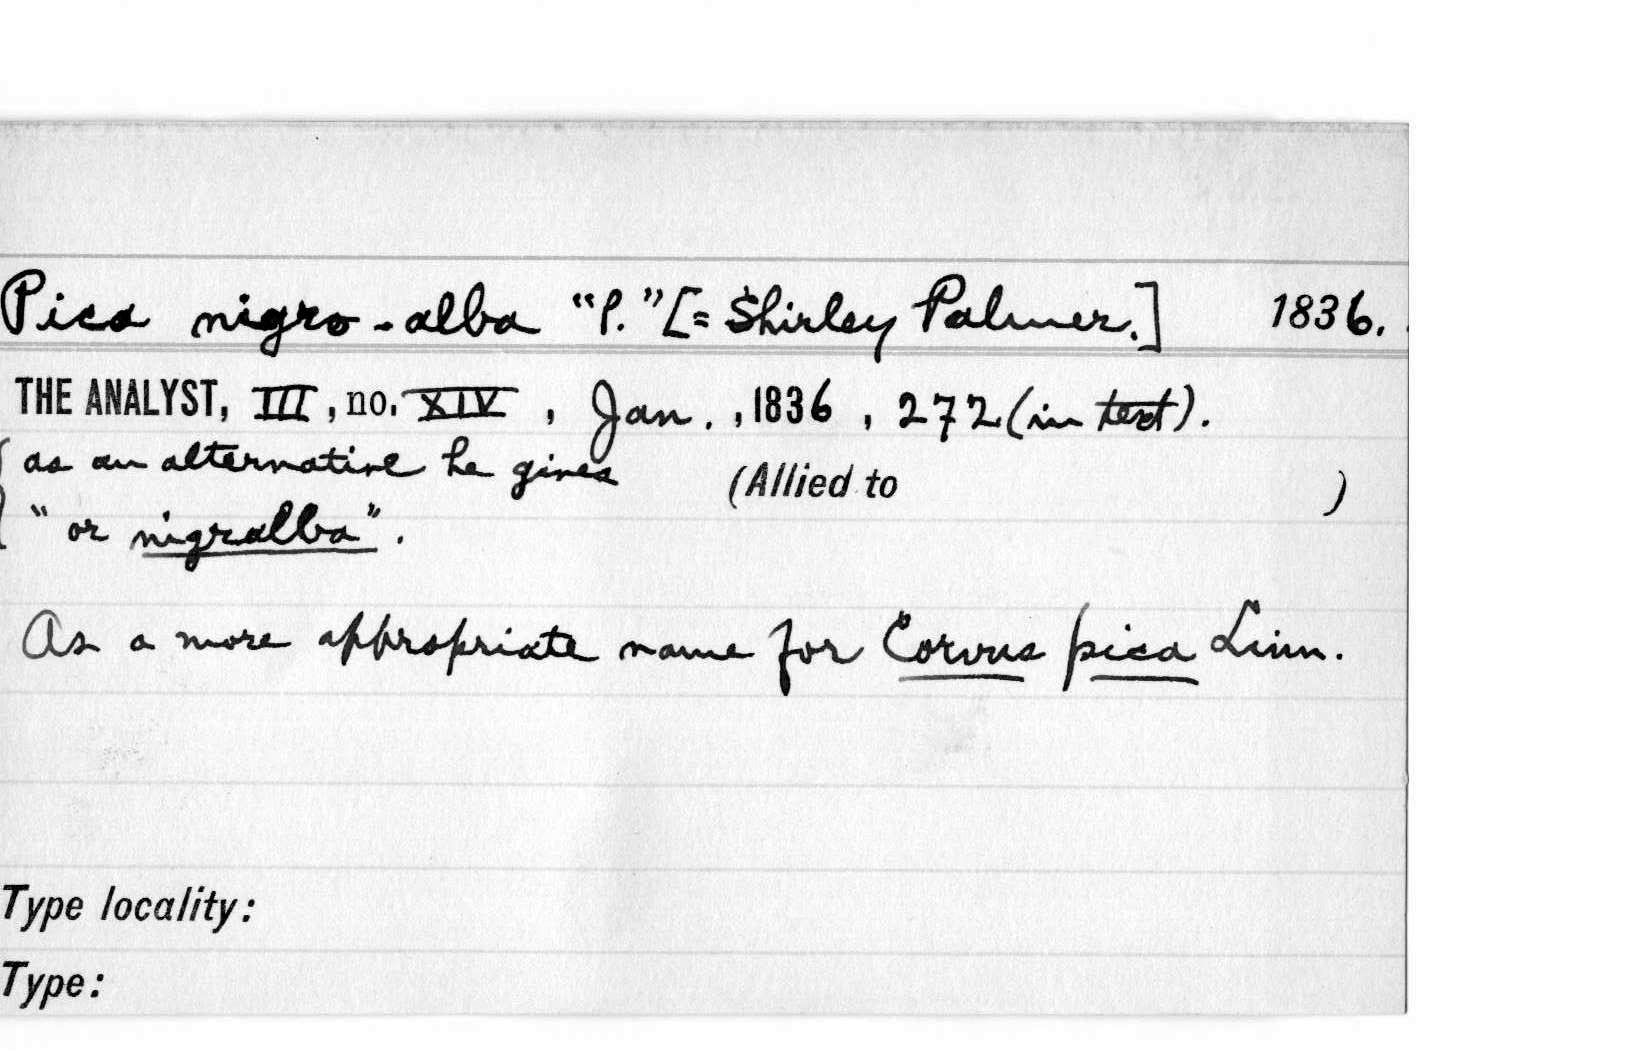 Pica nigro-alba "P." [= Shirley Palmer.] 1836.
THE ANALYST, III, no. XIV, Jan., 1836, 272 (in text).
as an alternative he gives (Allied to )
"or nigralba".
As a more appropriate name for Corvus pica Linn.
Type locality:
Type: